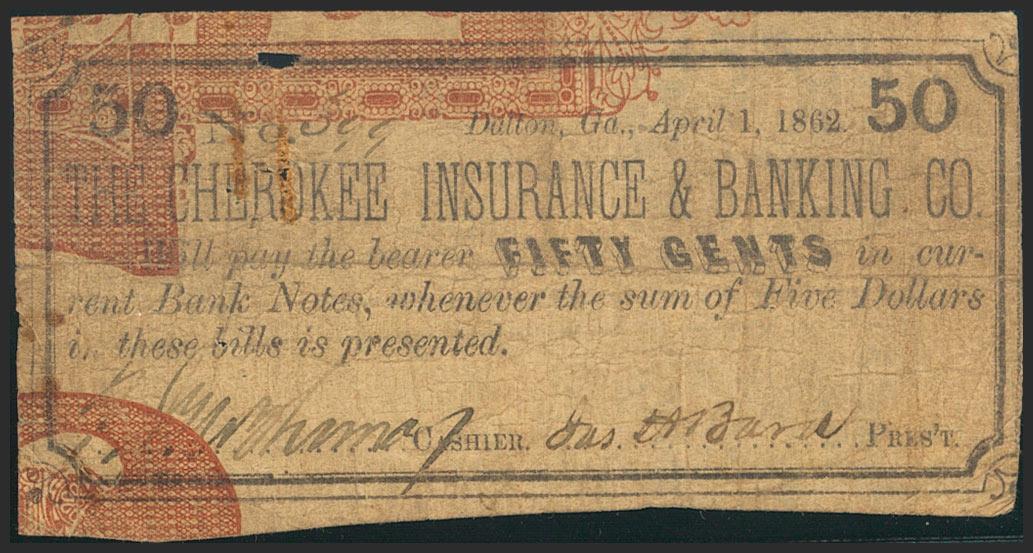 50 50
No. Dalton, Ga., April 1, 1862.
THE CHEROKEE INSURANCE & BANKING CO.
Will pay the bearer FIFTY CENTS in cur-
rent Bank Notes, whenever the sum of Five Dollars
in these bills is presented.
CASHIER. Jas. PRES'T.